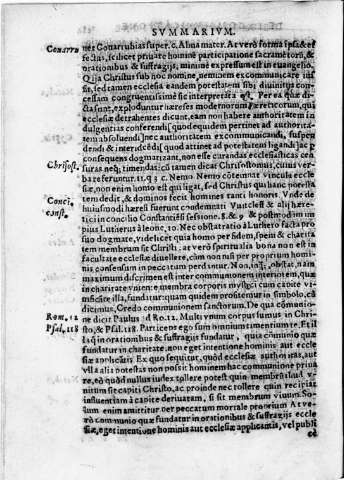 SVMMARIVM.
Conarru
uet Couarrubias super. c. Alma mater. At verò forma ipsa & ef
fectus, scilicet priuatè hominē participatione sacramētorū, &
orationibus & suffragijs, minimè expressum est in euangelio.
Quia Christus sub hoc nomine, neminem excommunicare ius
sit, sed tamen ecclesia eandem potestatem sibi diuinitus con
cessam congruentissimè sic interpretata est. Per ea quæ di
cta sunt, exploduntur hæreses modernorum hæreticorum, qui
ecclesiæ detrahentes dicunt, eam non habere authoritatem in
dulgentias conferendi [quod quidem pertinet ad authorita
tem absoluendi] nec authoritatem excommunicandi, suspen
dendi & interdicēdi [quod attinet ad potestatem ligandi] ac p
consequens dogmatizant, non esse curandas ecclesiasticas cen
Chrisost.
suras neq; timendas: cū tamen dicat Chrisostomus, cuius ver
ba referuntur. 11. q. 3. c. Nemo. Nemo cōtemnat vincula eccle
siæ, non enim homo est qui ligat, sed Christus qui hanc potesta
tem dedit, & dominos fecit homines tanti honoris. Vnde de
Conci.
const.
huiusmodi hæresi fuerunt condemnati Vuitcleff & alij hære
tici in concilio Constantiēsi sessione. 8. & 9 & postmodum im
pius Lutherus à leone. 10. Nec obstat ratio à Luthero facta pro
suo dogmate, videlicet quia homo per fidem, spem & charita
tem membrum sit Christi: at verò spiritualia bona non est in
facultate ecclesiæ diuellere, cùm non nisi per proprium homi
nis consensum in peccatum perdantur. Non, inq̃; obstat, nam
maximum discrimen est inter communionem interiorem, quæ
in charitate vnien: e membra corporis mystici cum capite vi
uificāte illa, fundatur: quam quidem profitemur in simbolo, cū
dicimus, Credo communionem sanctorum. De qua cōmunio-
Rom. 12
ne dicit Paulus ad Ro. 12. Multi vnum corpus sumus in Chri-
Psal. 118
sto, & Psal. 118. Particeps ego sum omnium timentium te. Et il
la q̃ in orationibus & suffragijs fundatur, quæ cōmunio quæ
fundatur in charitate, non eget intentione hominis aut eccle
siæ applicātis. Ex quo sequitur, quòd ecclesiæ authoritas, aut
vlla alia potestas non possit hominem hac communione priua
re, eò quòd nullus iudex tollere potest quin membra sint vni
nita suo capiti Christo, ac proinde nec tollere quin recipiat
influentiam à capite deriuatam, si sit membrum viuum. So-
lùm enim amittitur per peccatum mortale proprium At ve
rò communio quæ fundatur in orationibus & suffragijs eccle
siæ, eget intentione hominis aut ecclesiæ applicantis, vel publi
cè